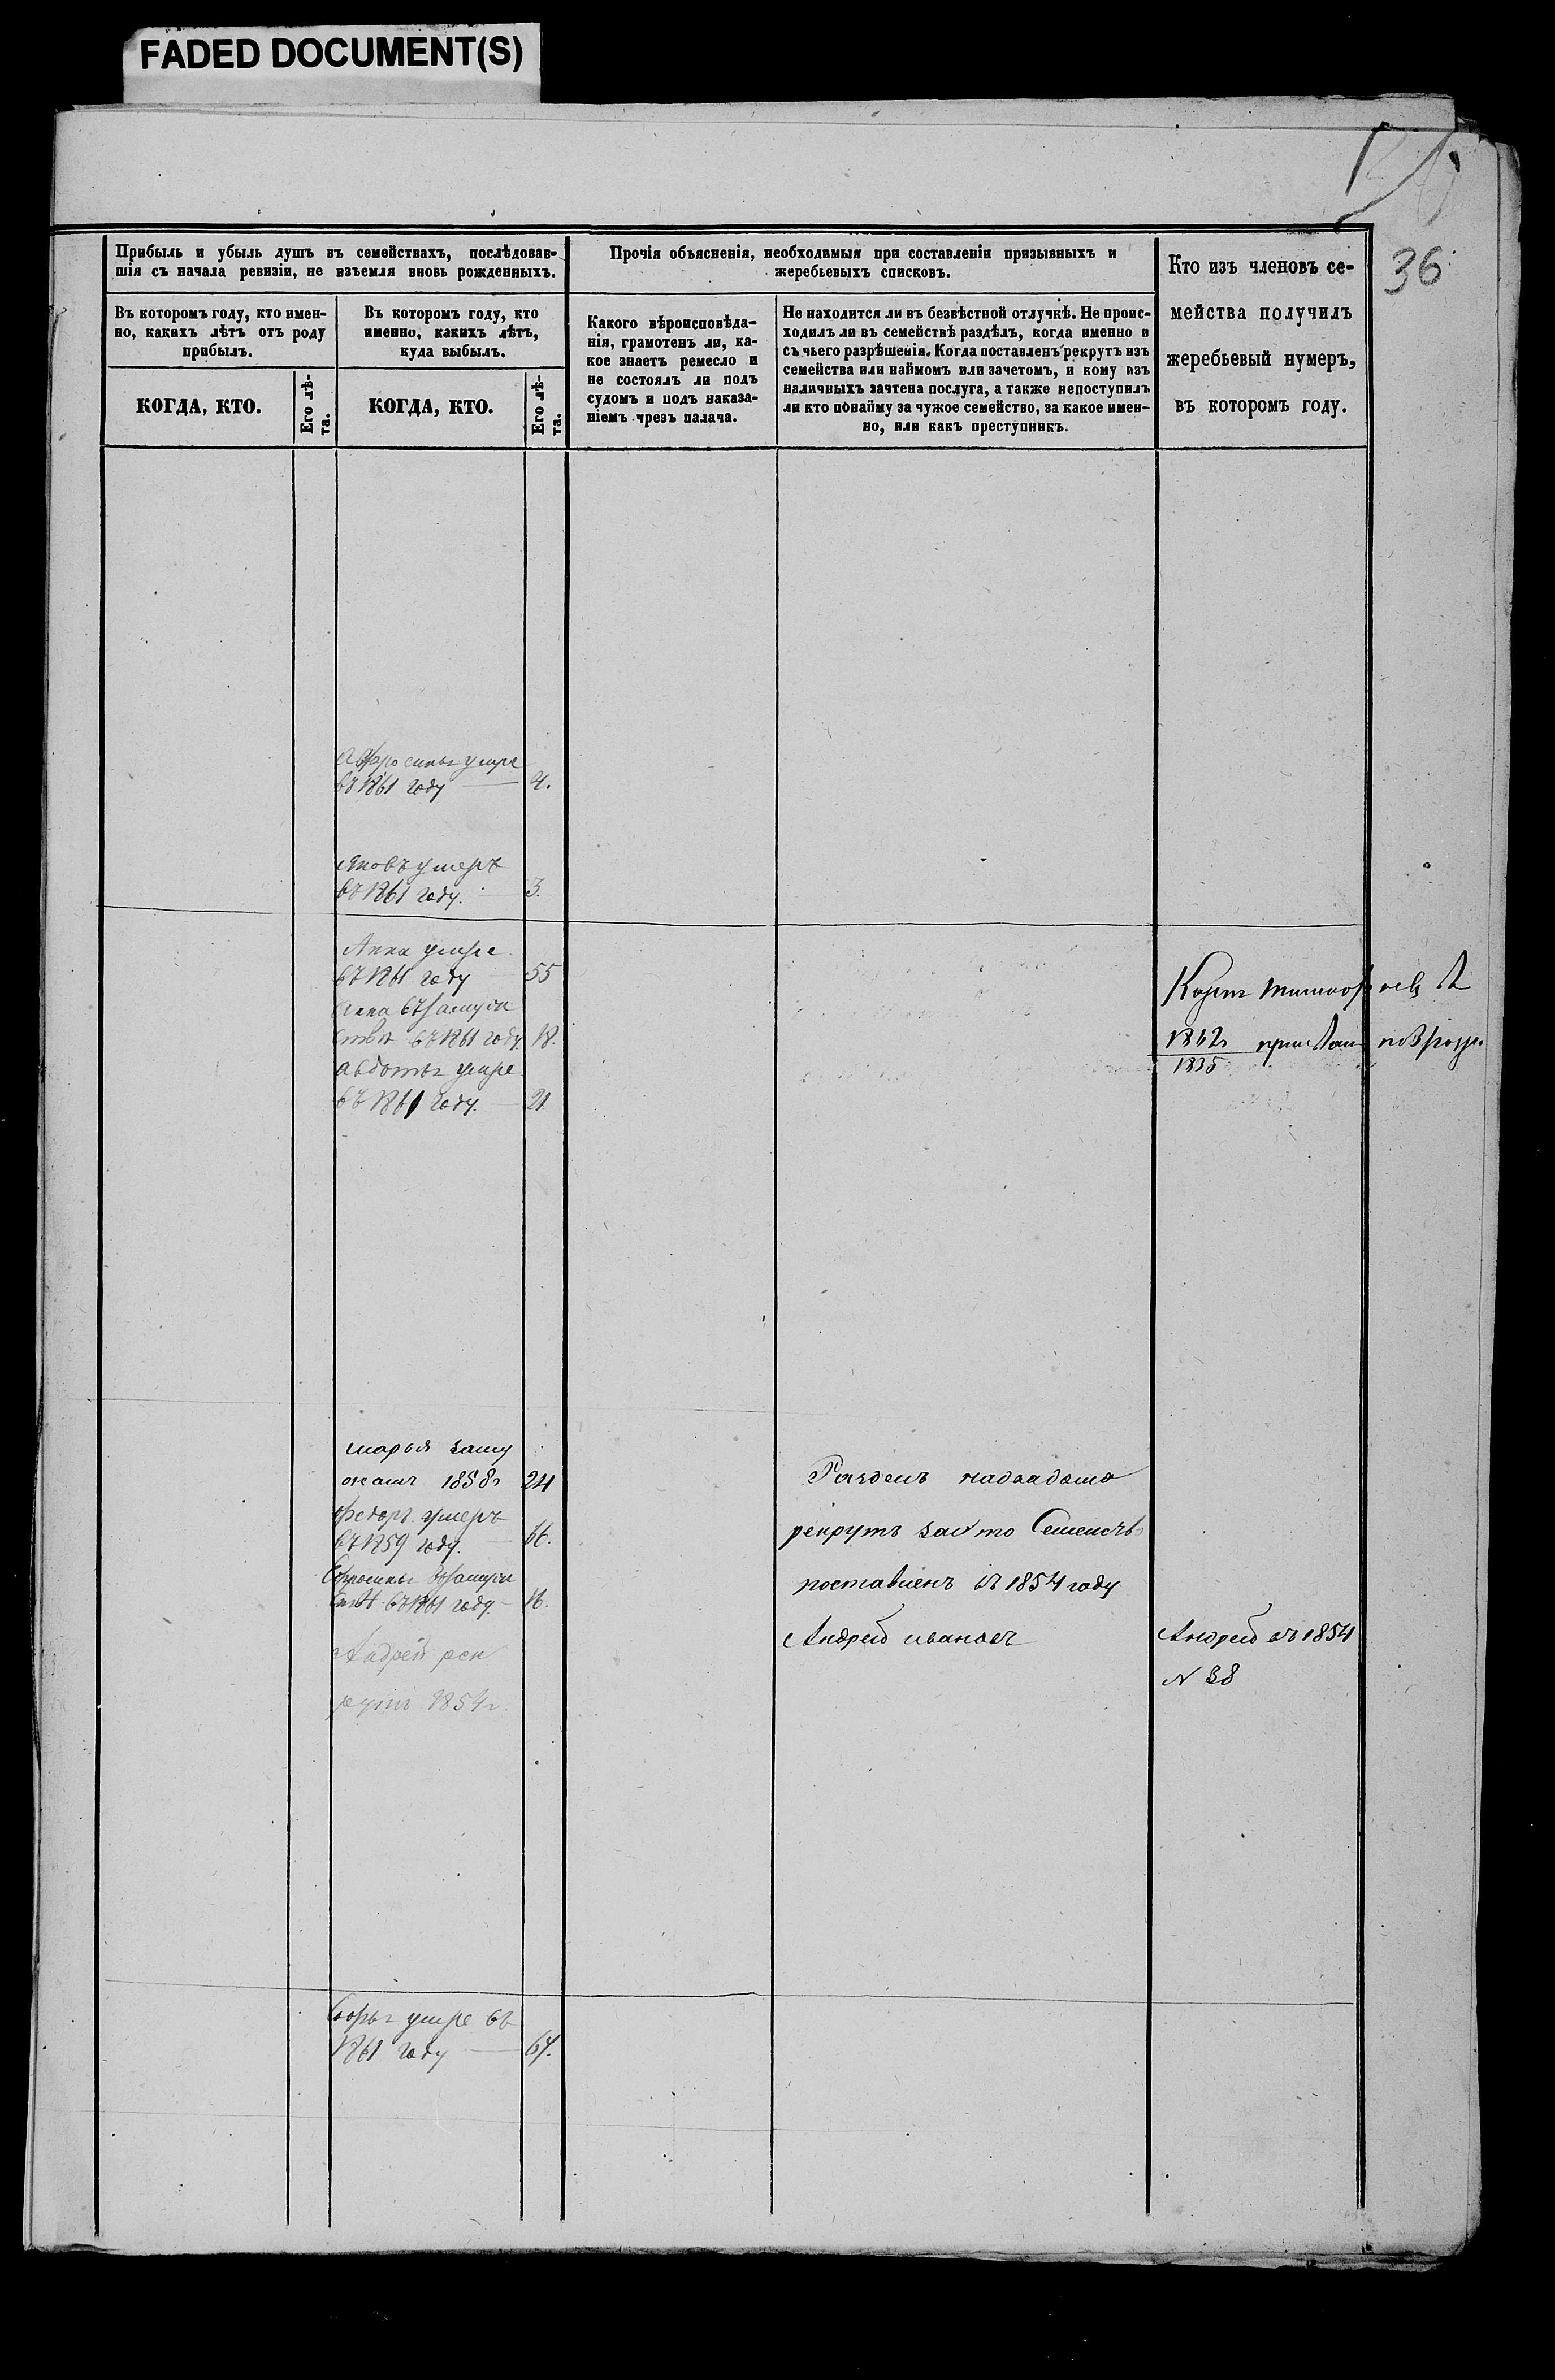 FADED DOCUMENT(S)
36
Прибыль и убыль душъ въ семействахъ, послѣдовав-
шія съ начала ревизіи, не изъемля вновь рожденныхъ.
Въ которомъ году, кто имен-
но, какихъ лѣтъ отъ роду
прибылъ.
КОГДА, КТО.
Его лѣ-
та.
Въ которомъ году, кто
именно, какихъ лѣтъ,
куда выбылъ.
КОГДА, КТО.
Его лѣ-
та.
Прочія объясненія, необходимыя при составленіи призывныхъ и
жеребьевыхъ списковъ.
Какого вѣроисповѣда-
нія, грамотенъ ли, ка-
кое знаетъ ремесло и
не состоялъ ли подъ
судомъ и подъ наказа-
ніемъ чрезъ палача.
Не находится ли въ безвѣстной отлучкѣ. Не проис-
ходилъ ли въ семействѣ раздѣлъ, когда именно и
съ чьего разрѣшенія. Когда поставленъ рекрутъ изъ
семейства или наймомъ или зачетомъ, и кому изъ
наличныхъ зачтена послуга, а также непоступилъ
ли кто понайму за чужое семейство, за какое имен-
но, или какъ преступникъ.
Кто изъ членовъ се-
мейства получилъ
жеребьевый нумеръ,
въ которомъ году.
Афросинья умре
въ 1861 году 4.
Яковъ умеръ
въ 1861 году. 3.
Анна умре
въ 1861 году 55
Анна въ замуж
ство въ 1861 году 18.
авдотья умре
въ 1861 году. 21
1862
1835
марья заму
жемъ 1858г 24
федоръ умеръ
въ 1859 году. 66.
въ замуж
въ 1861 году. 16.
Андрей рек
рутъ 1854г
рекрутъ за это Семейство
поставленъ въ 1854 году
Андрей ивановъ
Андрей въ 1854
N 38
умре въ
1861 году 67.